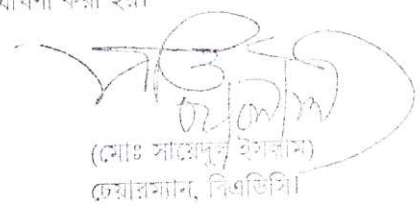 করা হয়।
(মোঃ সায়েদুল ইসলাম)
চেয়ারম্যান, বিএডিসি।